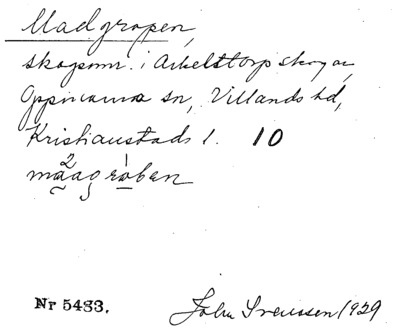 Madgropen,
skogsomr. i Arkelstorp skogar,
Oppmanna sn, Villands hd,
Kristianstads l. 10
maagroben
Nr 5483.
John Svensson 1929